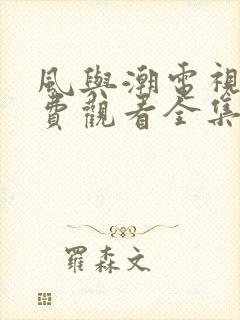 風與潮電視
費觀看全集
羅森文